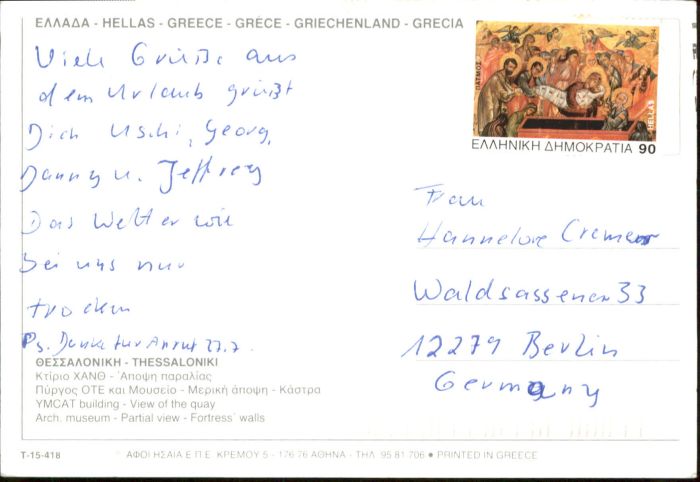 ΕΛΛΑΔΑ - HELLAS - GREECE - GRÈCE - GRIECHENLAND - GRECIA
Viele Grüße aus
dem Urlaub grüßt
Dich Uschi, Georg,
Danny u. Jeffrey
Das Wetter wie
bei uns nur
trocken
Ps. Danke für Anruf 27.7.
ΠΑΤΜΟΣ
1994
HELLAS
ΕΛΛΗΝΙΚΗ ΔΗΜΟΚΡΑΤΙΑ 90
Frau
Hannelore Cremer
Waldsassener 33
12279 Berlin
Germany
ΘΕΣΣΑΛΟΝΙΚΗ - THESSALONIKI
Κτίριο ΧΑΝΘ - Άποψη παραλίας
Πύργος ΟΤΕ και Μουσείο - Μερική άποψη - Κάστρα
YMCAT building - View of the quay
Arch. museum - Partial view - Fortress' walls
T-15-418
ΑΦΟΙ ΗΣΑΙΑ Ε.Π.Ε. ΚΡΕΜΟΥ 5 - 176 76 ΑΘΗΝΑ - ΤΗΛ. 95 81 706 • PRINTED IN GREECE